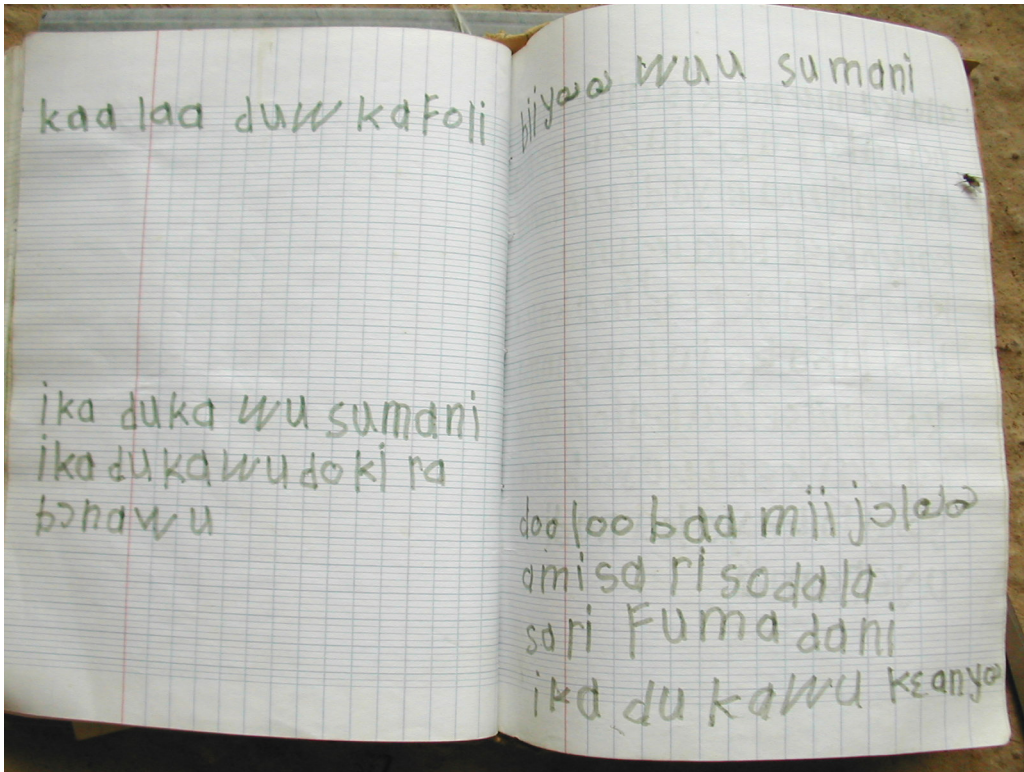 kaa laa duw kafoli
ika duka wu sumani
ika du ka wu do ki ra
bɔnawu
biiyaa wuu sumani
doo loo baa mii jɔlaa
ami sa ri so da la
sari Fuma dani
ika du kawu kɛanya